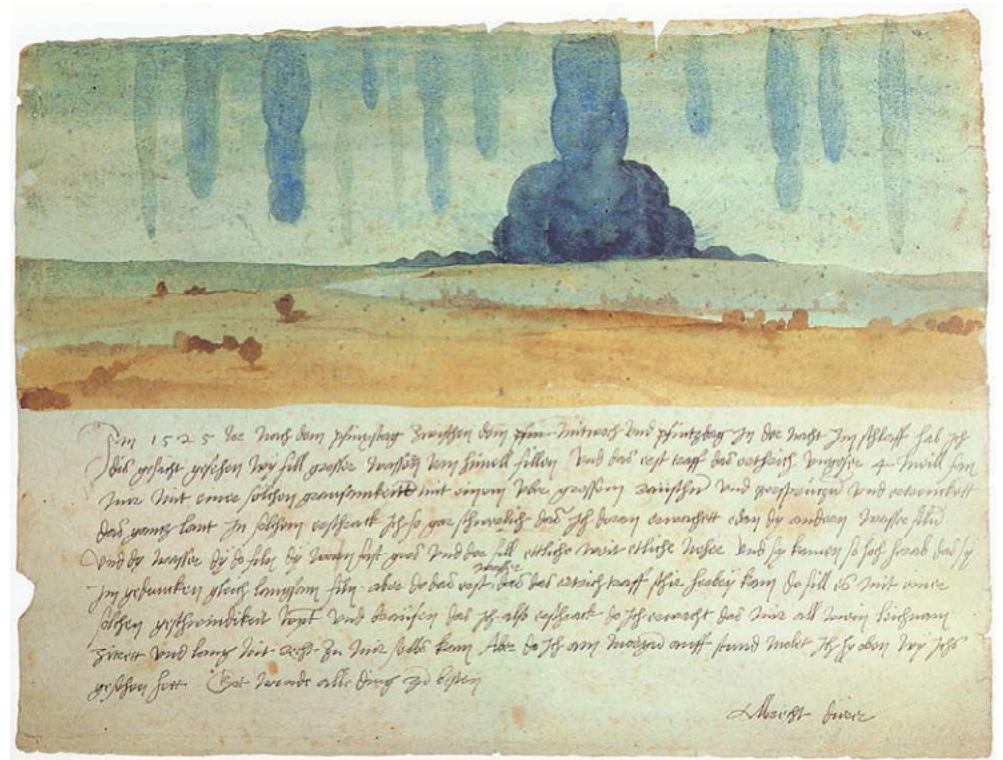 Im 1525 Jor nach dem pfinxstag zwischen dem Mitwoch und pfintzdag in der nacht im schlaff hab ich
dis gesicht gesehen wy fill grosser wassern vom himell fillen Und das erst traff das erthrich ungefer 4 meill fan
mir mit einer solchen grausamkeitt mit einem uber grossem raüschn und zersprützn und ertrenckett
das gantz lant In solchem erschrack ich so gar schwerlich das ich doran erwachett edan dy andern wasser filn
Und dy wasser dy do filn dy warn fast gros und der fill ettliche weit etliche neher und sy kamen so hoch herab das sy
im gedancken gleich langsam filn. aber do das erst wasser das das ertrich traff schir herbey kam do fill es mit einer
solchen geschwindikeit wynt und braüsen das ich also erschrack do ich erwacht das mir all mein leichnam
zitrett und lang nit recht zu mir selbs kam Aber do ich am morgen auff stund molet ich hy oben wy ichs
gesehen hett Got wende alle ding zu besten
Albrecht dürer